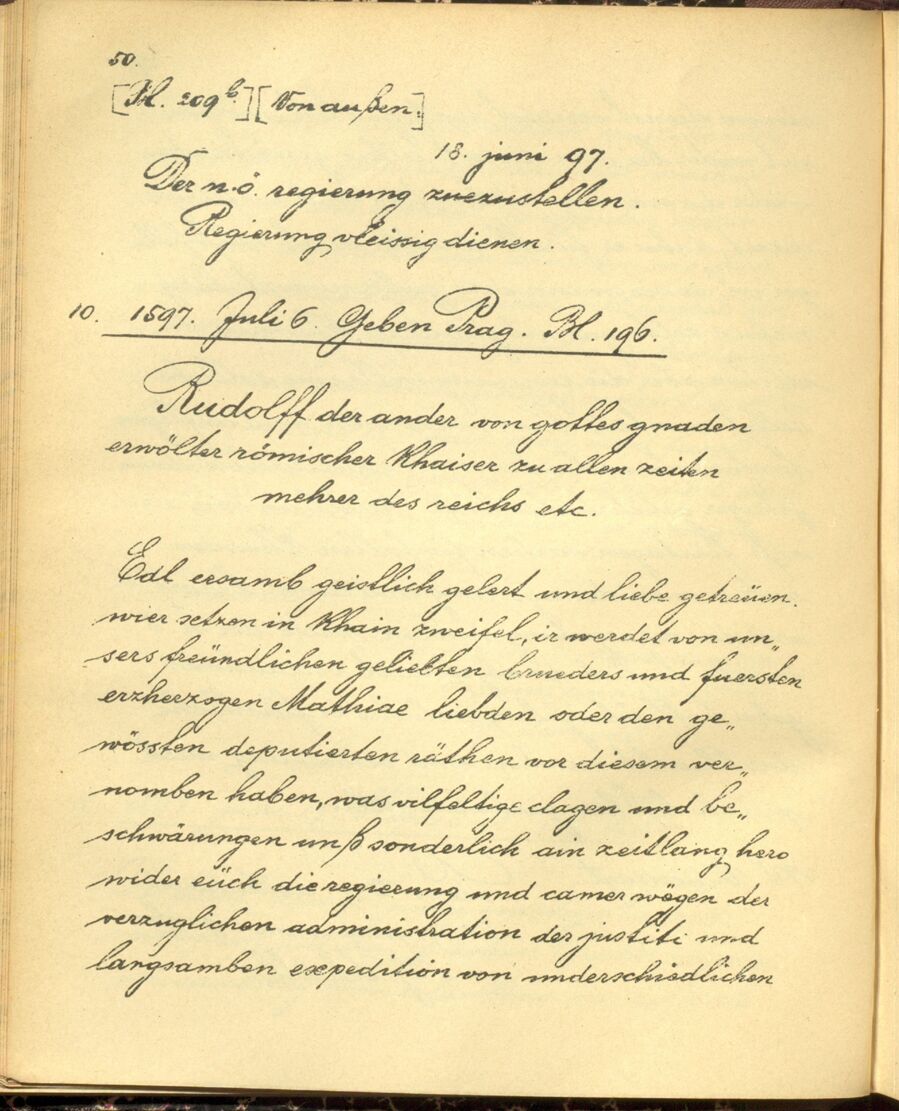 50.
[Bl. 209 b.] [Von außen.]
18. juni 97.
Der n. ö. regierung zuezustellen.
Regierung vleissig dienen.
10. 1597. Juli 6. Geben Prag. Bl. 196.
Rudolff der ander von gottes gnaden
erwölter römischer Khaiser zu allen zeiten
mehrer des reichs etc.
Edl ersamb geistlich gelert und liebe getreüen.
wier setzen in Khain zweifel, ir werdet von un„
sers freündlichen geliebten brueders und fuersten
erzherzogen Mathiae liebden oder den ge„
wössten deputierten räthen vor diesem ver„
nomben haben, was vilfeltige clagen und be„
schwärungen unß sonderlich ain zeitlang hero
wider eüch die regierung und camer wägen der
verzuglichen administration der justiti und
langsamben expedition von underschiedlichen